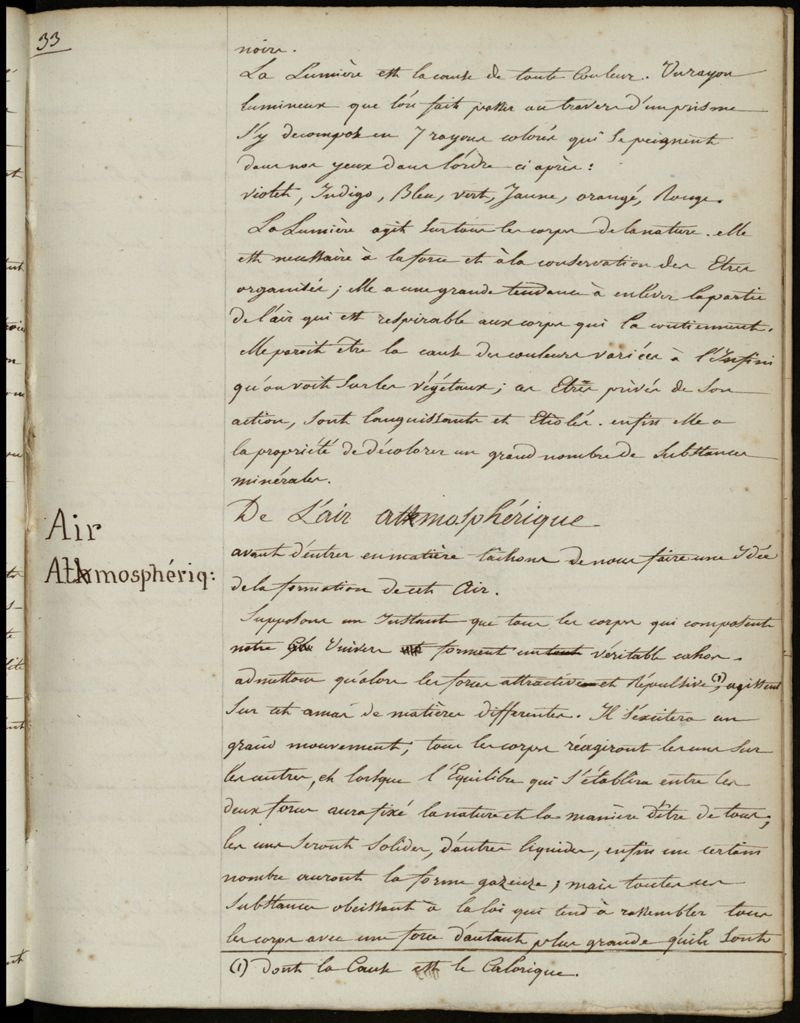 33
noire.
La Lumière est la cause de toute Couleur. Un rayon
lumineux que l'on fait passer au travers d'un prisme
s'y decompose en 7 rayons colorés qui se peignent
dans nos yeux dans l'ordre ci après:
violet, Indigo, Bleu, vert, Jaune, orangé, Rouge.
La Lumière agit sur tous les corps de la nature. elle
est necessaire à la force et à la conservation des Etres
organisés; elle a une grande tendance à enlever la partie
de l'air qui est respirable aux corps qui la contiennent.
elle paroit être la cause des couleurs variées à l'Infini
qu'on voit sur les végétaux; ces Etres privés de son
action, sont languissants et Etiolés. enfin elle a
la propriété de décolorer un grand nombre de substances
minérales.
Air
Atmosphériq:
De L'air atmosphérique
avant d'entrer en matière tâchons de nous faire une Idée
de la formation de cet Air.
Supposons un Instant que tous les corps qui composent
notre Univers forment un véritable cahos.
admettons qu'alors les forces attractive et Répulsive (1), agissent
sur cet amas de matières differentes. Il s'éxcitera un
grand mouvement; tous les corps réagiront les uns sur
les autres, et lorsque l'Equilibre qui s'établira entre les
deux forces aura fixé la nature et la manière d'être de tous;
les uns seront solides, d'autres liquides, enfin un certain
nombre auront la forme gazeuze; mais toutes ces
substances obeissant à la loi qui tend à rassembler tous
les corps avec une force d'autant plus grande qu'ils sont
(1) dont la Cause est le Calorique.